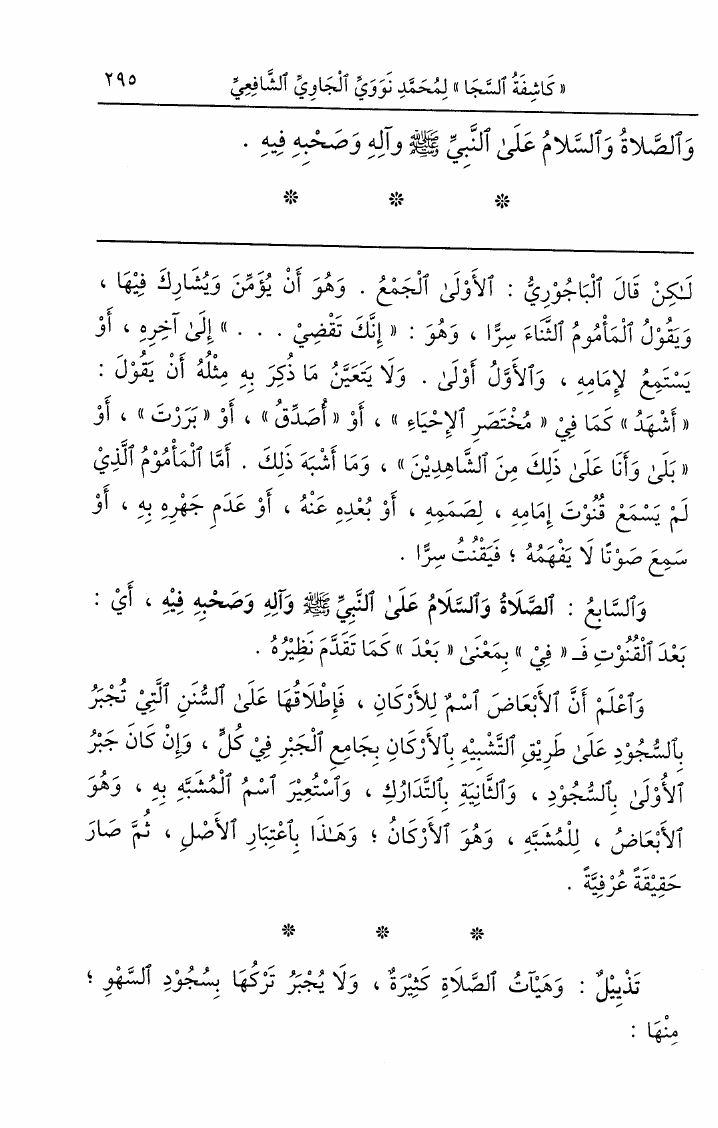 « كَاشِفَةُ ٱلسَّجَا » لِمُحَمَّدِ نَوَوِيِّ ٱلْجَاوِيِّ ٱلشَّافِعِيِّ ٢٩٥
وَٱلصَّلاةُ وَٱلسَّلامُ عَلَىٰ ٱلنَّبِيِّ ﷺ وآلِهِ وَصَحْبِهِ فِيهِ .
* * *
لَـٰكِنْ قَالَ ٱلْبَاجُوْرِيُّ : ٱلأَوْلَىٰ ٱلْجَمْعُ . وَهُوَ أَنْ يُؤَمِّنَ وَيُشَارِكَ فِيْهَا ،
وَيَقُوْلُ ٱلْمَأْمُومُ ٱلثَّنَاءَ سِرًّا ، وَهُوَ : « إِنَّكَ تَقْضِيْ . . . » إِلَىٰ آخِرِهِ ، أَوْ
يَسْتَمِعُ لِإِمَامِهِ ، وَٱلأَوَّلُ أَوْلَىٰ . وَلَا يَتَعَيَّنُ مَا ذُكِرَ بِهِ مِثْلُهُ أَنْ يَقُوْلَ :
« أَشْهَدُ » كَمَا فِيْ « مُخْتَصَرِ ٱلإِحْيَاءِ » ، أَوْ « أُصَدِّقُ » ، أَوْ « بَرَرْتَ » ، أَوْ
« بَلَىٰ وَأَنَا عَلَىٰ ذَلِكَ مِنَ ٱلشَّاهِدِيْنَ » ، وَمَا أَشْبَهَ ذَلِكَ . أَمَّا ٱلْمَأْمُوْمُ ٱلَّذِيْ
لَمْ يَسْمَعْ قُنُوْتَ إِمَامِهِ ، لِصَمَمِهِ ، أَوْ بُعْدِهِ عَنْهُ ، أَوْ عَدَمِ جَهْرِهِ بِهِ ، أَوْ
سَمِعَ صَوْتًا لَا يَفْهَمُهُ ؛ فَيَقْنُتُ سِرًّا .
وَٱلسَّابِعُ : ٱلصَّلَاةُ وَٱلسَّلَامُ عَلَىٰ ٱلنَّبِيِّ ﷺ وَآلِهِ وَصَحْبِهِ فِيْهِ ، أَيْ :
بَعْدَ ٱلْقُنُوْتِ فَـ « فِيْ » بِمَعْنَىٰ « بَعْدَ » كَمَا تَقَدَّمَ نَظِيْرُهُ .
وَٱعْلَمْ أَنَّ ٱلأَبْعَاضَ ٱسْمٌ لِلأَرْكَانِ ، فَإِطْلَاقُهَا عَلَىٰ ٱلسُّنَنِ ٱلَّتِيْ تُجْبَرُ
بِٱلسُّجُوْدِ عَلَىٰ طَرِيْقِ ٱلتَّشْبِيْهِ بِٱلأَرْكَانِ بِجَامِعِ ٱلْجَبْرِ فِيْ كُلٍّ ، وَإِنْ كَانَ جَبْرُ
ٱلأُوْلَىٰ بِٱلسُّجُوْدِ ، وَٱلثَّانِيَةِ بِٱلتَّدَارُكِ ، وَٱسْتُعِيْرَ ٱسْمُ ٱلْمُشَبَّهِ بِهِ ، وَهُوَ
ٱلأَبْعَاضُ ، لِلْمُشَبَّهِ ، وَهُوَ ٱلأَرْكَانُ ؛ وَهَـٰذَا بِٱعْتِبَارِ ٱلأَصْلِ ، ثُمَّ صَارَ
حَقِيْقَةً عُرْفِيَّةً .
* * *
تَذْيِيْلٌ : وَهَيْآتُ ٱلصَّلَاةِ كَثِيْرَةٌ ، وَلَا يُجْبَرُ تَرْكُهَا بِسُجُوْدِ ٱلسَّهْوِ ؛
مِنْهَا :